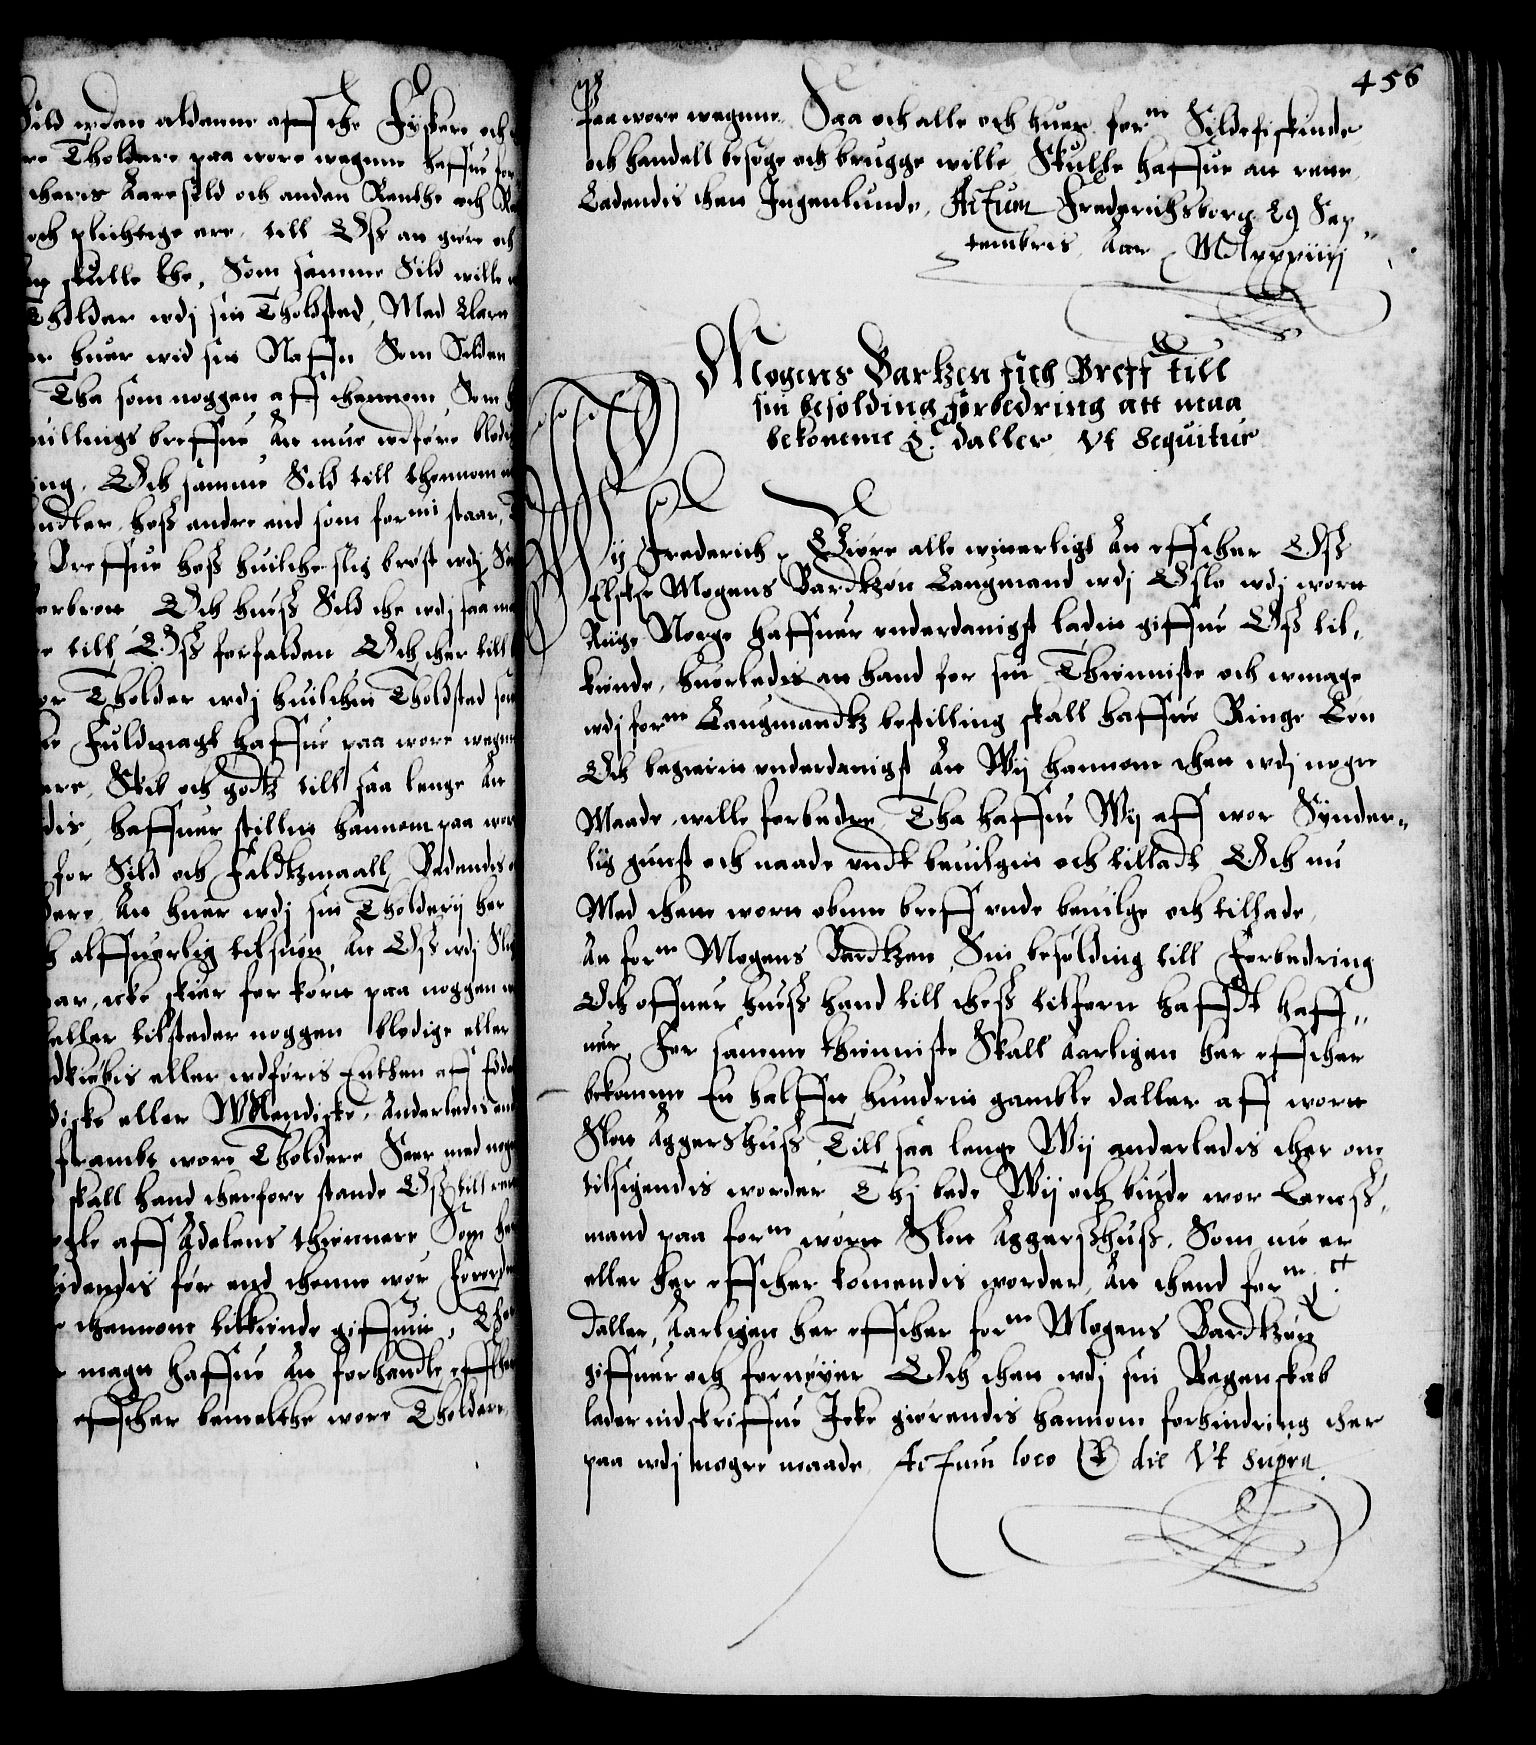 Sild vden aldenne aff the Fyskere och
re Tholdere paa wore wegnne haffue for
theris Aaresild och anden Renthe och
och plichtige ere, till Oss att giøre och
skulle the, Som samme Sild wille
Tholder vdj sin Tholdsted, Med Klare
huer wid sin Naffn Som Silden
Tha som noggen aff thennom Som
uillings breffue At mue vdføre
ing, Och samme Sild till thennom
andter hoss andre end som for:ne staar,
Breffue hoss huilcke slig brøst vdj
forbrott Och huess Sild the vdj saa
till Oss forfalden Och ther till
or Tholder vdj huilchen Tholdsted
Fuldmagt haffue paa wore wegnne
ere, Skib och godtz till saa lenge At
dis, haffuer stillett hannom paa wore
for Sild och Faldtzmaall, Bedendis
dere, At huer vdj sin Tholderij her
alffuerlig tilsiun, At Oss vdj
icke skier for kort paa noggen
eller tilsteder noggen blodige eller
dkiøbis eller vdføris Enthen aff
diske eller Wtlendiske, Anderledis end
frambt wore Tholdere Seer med nogen
skall hand therfore stande Oss till rette
nogle aff Adelens thiennere Som
idendis før end thenne wor Forord
thennom tilkiende giffuit,
magt haffue At forhandle effther
effther bemelthe wore Tholdere
456
Paa wore wegnne Saa och alle och huer for:ne Sildefiskende
och handell besøge och brugge wille Skulle haffue at rette
Ladendis thet Ingenlunde, Actum Frederichsborg 29 Sep
tembris Aar MDlxxxiiij
Mogens Bartzen fich Breff till
sin besolding forbedring att maa
bekomme L. daller Vt sequitur
Wij Frederich, Giøre alle witterligt At effther Oss
Elskel: Mogens Bardtzøn Laugmand vdj Oslo vdj wort
Riige Norge haffuer vnderdanigst ladit giffue Oss til,
kiende, huorledis at hand for sin Thienniste och wmage
vdj for:ne Laugmandtz bestilling skall haffue Ringe Løn
Och begierit vnderdanigst At Wij hannom then vdj nogre
Maade wille forbedre, Tha haffue Wij aff wor Synder,,
lig gunst och naade vndt beuilgit och tilladt Och nu
Med thette wort obne breff vnde beuilge och tillade,
At for:ne Mogens Bardtzen Sin besolding till Forbedring
Och offuer huess hand till thess tilforn hafft haff,,
uer For samme thienniste Skall Aarligen her effther
bekomme En halffue hundrit gamble daller aff wort
Slott Aggershuss Till saa lenge Wij anderledis ther om
tilsigendis worder Thj bede Wij och biude wor Lenss,
mand paa for:ne wort Slott Aggersshuss, Som nu er
eller her effther komendis worder, At thend for:ne Lct
Daller, Aarligen her effther for:ne Mogens Bardtzøn
giffuer och fornøyer Och thet vdj sin Regenskab
lader indskriffue Icke giørendis hannom forhindring ther
paa vdj nogre maade, Actum loco & die Vt supra